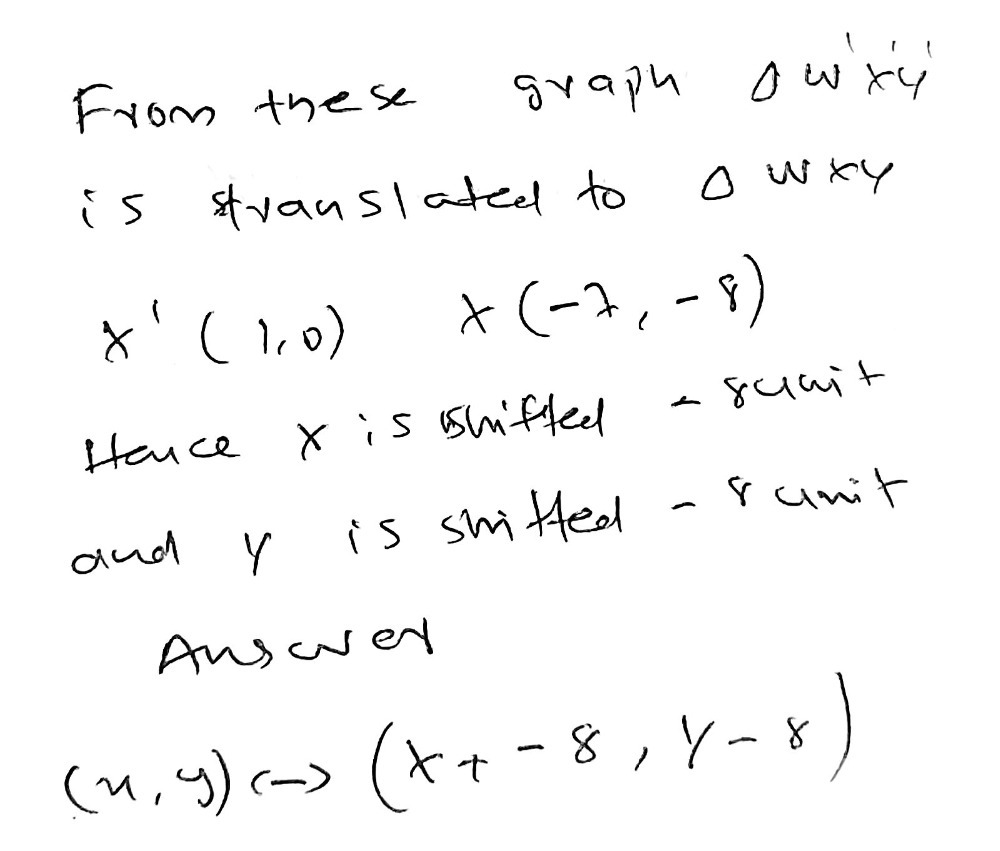 From these graph Δ W'X'Y'
is translated to Δ WXY
X' (1,0) X (-7, -8)
Hence X is shifted - 8 unit
and Y is shifted - 8 unit
Answer
(x, y) <-> (X + - 8, Y - 8)